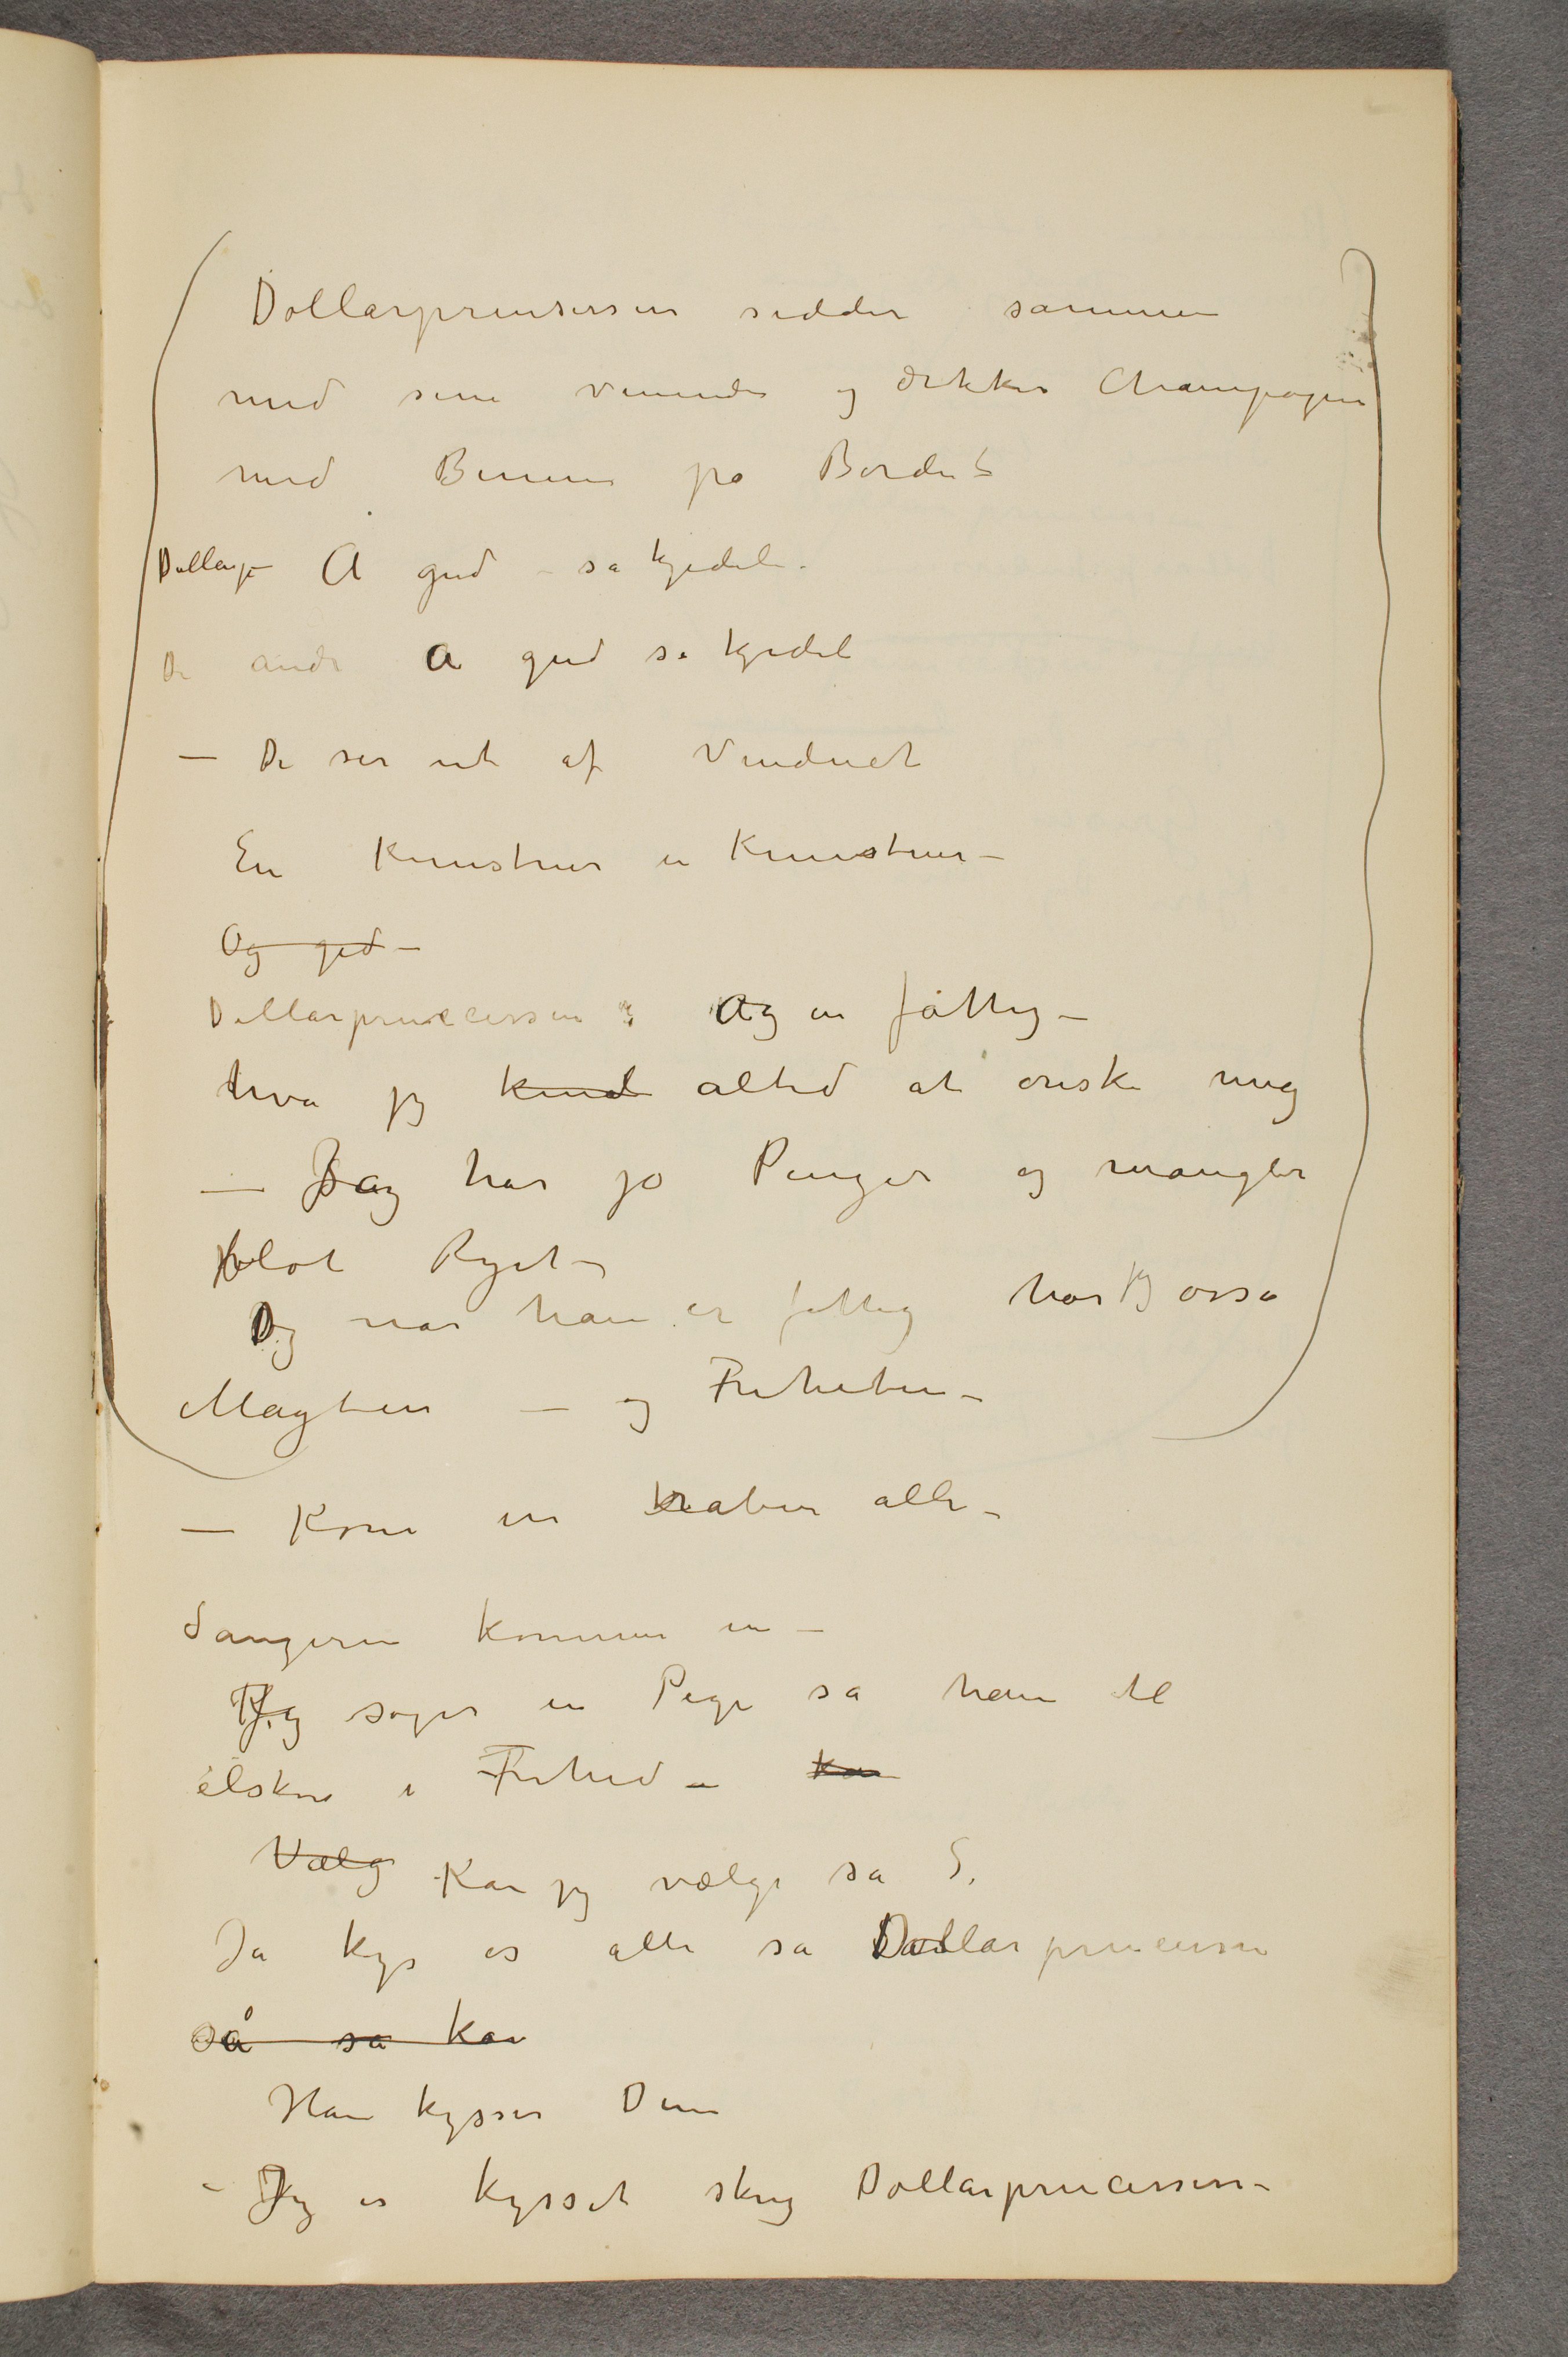 Dollarprinsessen sidder sammen
med sine veninder og drikker Champagne
med Benene på Bordet
Dollarp– A gud – så kjedel.
De andre A gud så kjedel
– De ser ut af Vinduet
En Kunstner en Kunstner –
Og gud –
Dollarprincessen : Og en fattig –
hva jeg altid at ønske mig
– Jeg har jo Penger og mangler
blot Ryet –
Og nar han er fattig har jeg osså
Magten – og Friheten –
– Kom in råber alle –
Sangeren kommer in –
Jeg søger en Pige sa han til
elsker i Frihed – Kan
Vælg Kan jeg vælge sa S.
Ja kys os alle sa Dollarprincessen
Så sa kan
Han kysser Dem
– Jeg er kysset skrig Dollarprincessen –